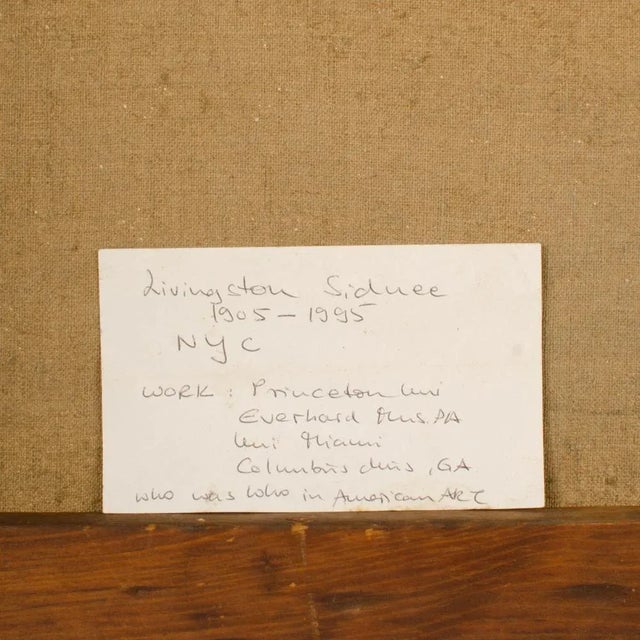 Livingston Sidnee
1905 - 1995
NYC
WORK: Princeton Uni
Everhard Mus. PA
Uni Miami
Columbus Mus, GA
who was who in American ART